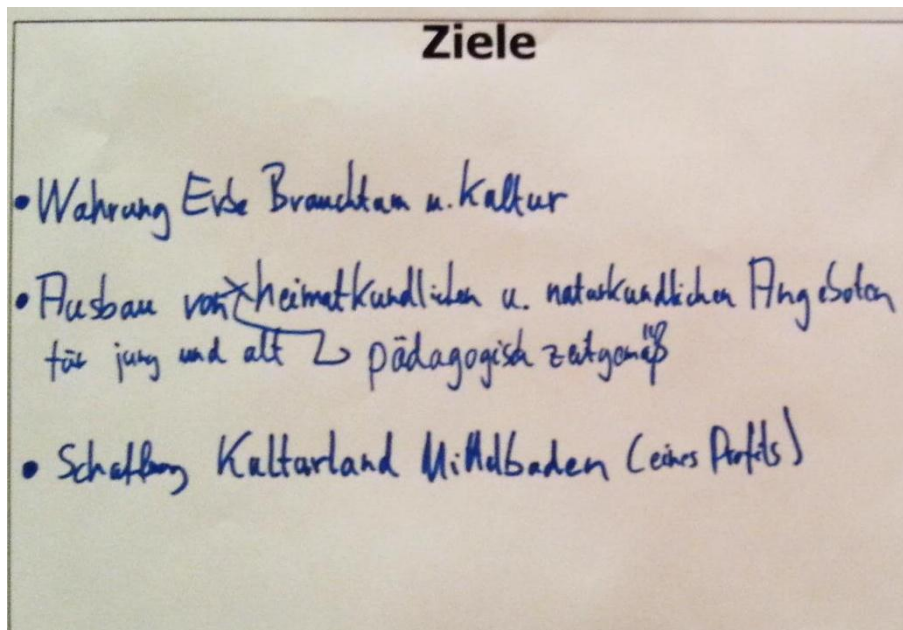 Ziele
• Wahrung Erbe Brauchtum u. Kultur
• Ausbau von heimatkundlichen u. naturkundlichen Angeboten
für jung und alt pädagogisch zeitgemäß
• Schaffung Kulturland Mittelbaden (eines Profils)